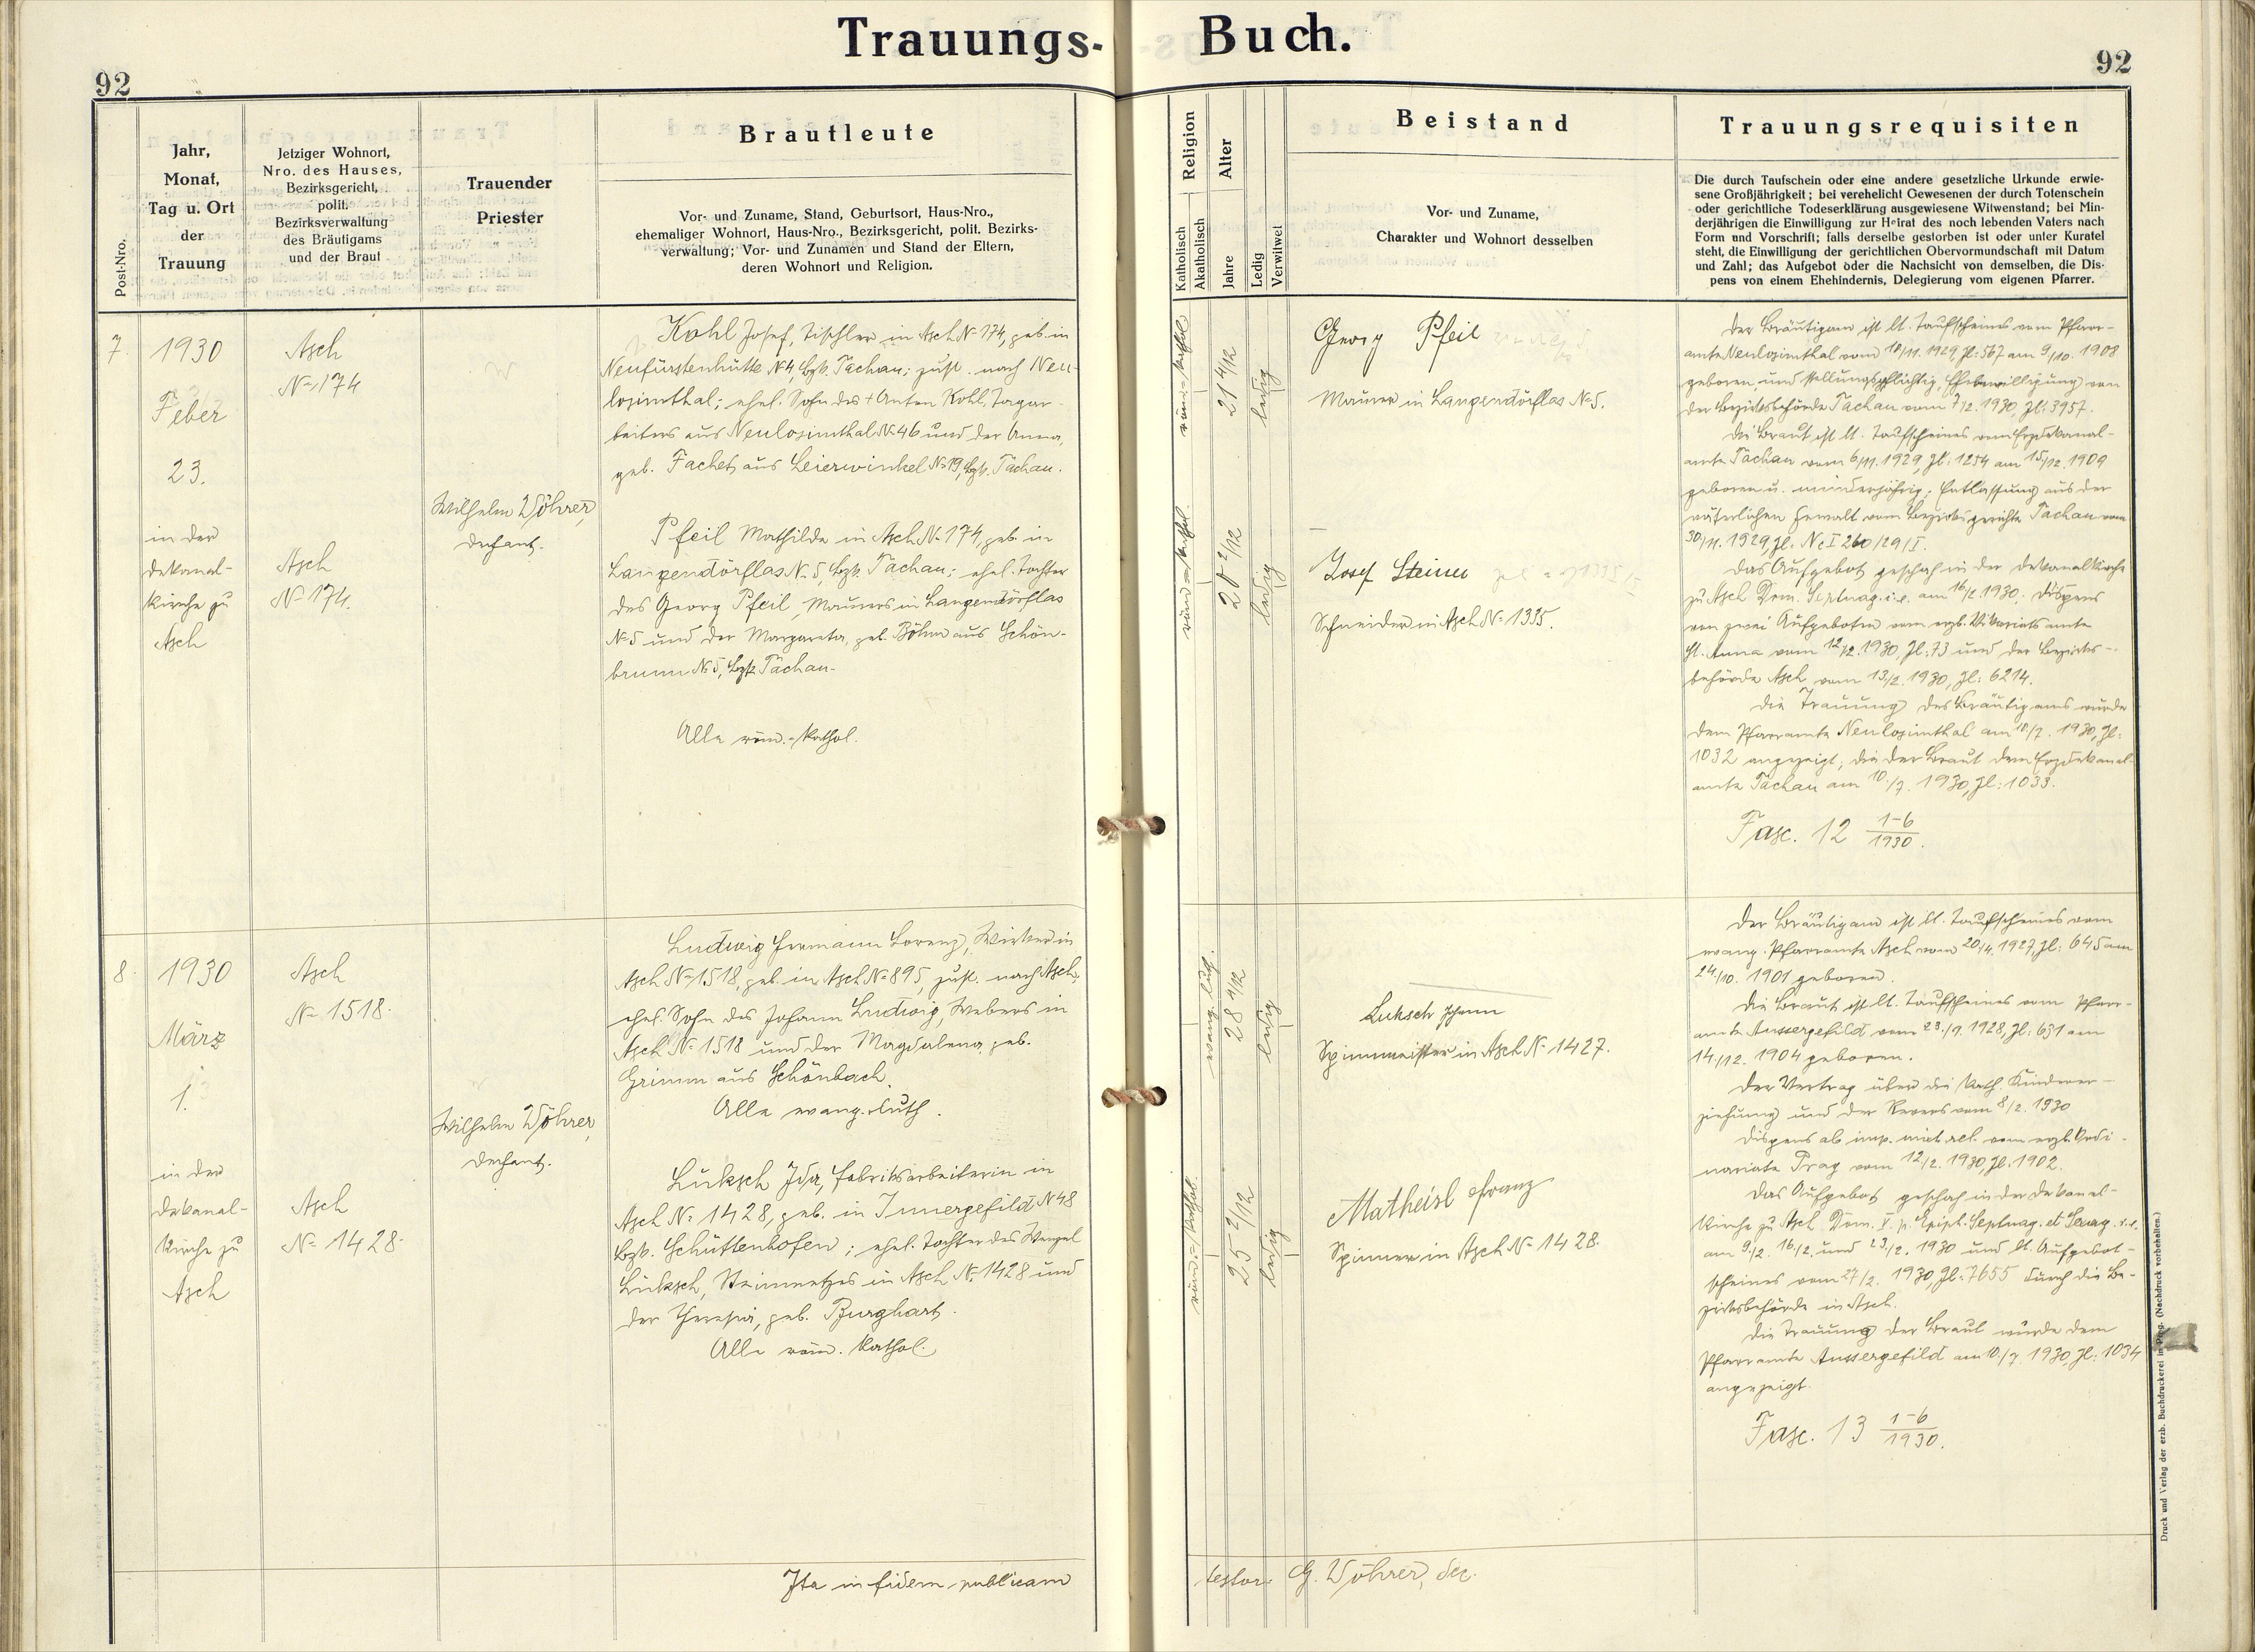 Trauungs-Buch.
92
92
Post-Nro.
Jahr,
Monat,
Tag u. Ort
der
Trauung
Jetziger Wohnort,
Nro. des Hauses,
Bezirksgericht,
polit.
Bezirksverwaltung
des Bräutigams
und der Braut
Trauender
Priester
Brautleute
Vor- und Zuname, Stand, Geburtsort, Haus-Nro.,
ehemaliger Wohnort, Haus-Nro., Bezirksgericht, polit. Bezirks-
verwaltung; Vor- und Zunamen und Stand der Eltern,
deren Wohnort und Religion.
Religion
Katholisch
Akatholisch
Alter
Jahre
Ledig
Verwitwet
Beistand
Vor- und Zuname,
Charakter und Wohnort desselben
Trauungsrequisiten
Die durch Taufschein oder eine andere gesetzliche Urkunde erwie-
sene Großjährigkeit; bei verehelicht Gewesenen der durch Totenschein
oder gerichtliche Todeserklärung ausgewiesene Witwenstand; bei Min-
derjährigen die Einwilligung zur Heirat des noch lebenden Vaters nach
Form und Vorschrift; falls derselbe gestorben ist oder unter Kuratel
steht, die Einwilligung der gerichtlichen Obervormundschaft mit Datum
und Zahl; das Aufgebot oder die Nachsicht von demselben, die Dis-
pens von einem Ehehindernis, Delegierung vom eigenen Pfarrer.
7.
1930
Feber
23.
in der
Dekanal-
kirche zu
Asch
Asch
N= 174
Asch
N= 174.
Wilhelm Wöhrer,
Dechant.
Kohl Josef, Tischler in Asch N= 174, geb. in
Neufürstenhütte N= 4, Bzk. Tachau; zust. nach Neu-
losimthal; ehel. Sohn des + Anton Kohl, Tagar-
beiters aus Neulosimthal N= 46 und der Anna,
geb. Fachet aus Leierwinkel N= 19, Bzk. Tachau.
Pfeil Mathilde in Asch N= 174, geb. in
Langendörflas N= 5, Bzk. Tachau; ehel. Tochter
des Georg Pfeil, Maurers in Langendörflas
N= 5 und der Margareta, geb. Böhm aus Schön-
brunn N= 5, Bzk. Tachau.
Alle röm.-kathol.
röm.-kathol.
21 4/12
ledig
röm.-kathol.
20 2/12
ledig
Georg Pfeil
Maurer in Langendörflas N= 5.
Josef Steiner
Schneider in Asch N= 1335.
Der Bräutigam ist lt. Taufscheines vom Pfarr-
amte Neulosimthal vom 18/11. 1929, Zl: 567 am 9/10. 1908
geboren und stellungspflichtig, Ehebewilligung von
der Bezirksbehörde Tachau vom 7/2. 1930, Zl: 3957.
Die Braut ist lt. Taufscheines vom Erzdekanal-
amte Tachau vom 6/11. 1929, Zl: 1254 am 15/12. 1909
geboren u. minderjährig; Entlassung aus der
väterlichen Gewalt vom Bezirksgerichte Tachau vom
30/11. 1929, Zl. Nc I 260/29/I.
Das Aufgebot geschah in der Dekanalkirche
zu Asch Dom. Septuag. i. e. am 16/2. 1930; Dispens
von zwei Aufgeboten vom erzb. Vikariatsamte
St. Anna vom 12/2. 1930, Zl: 73 und der Bezirks-
behörde Asch vom 13/2. 1930, Zl: 6214.
Die Trauung des Bräutigams wurde
dem Pfarramte Neulosimthal am 10/7. 1930, Zl:
1032 angezeigt; die der Braut dem Erzdekanal-
amte Tachau am 10/7. 1930, Zl: 1033.
Fasc. 12 1-6/1930.
8.
1930
März
1.
in der
Dekanal-
kirche zu
Asch
Asch
N= 1518.
Asch
N= 1428.
Wilhelm Wöhrer,
Dechant.
Ludwig Hermann Lorenz, Wirker in
Asch N= 1518, geb. in Asch N= 895, zust. nach Asch,
ehel. Sohn des Johann Ludwig, Webers in
Asch N= 1518 und der Magdalena, geb.
Grimm aus Schönbach.
Alle evang. luth.
Luksch Ida, Fabriksarbeiterin in
Asch N= 1428, geb. in Innergefild N= 48
Bzk. Schüttenhofen; ehel. Tochter des Wenzel
Luksch, Steinmetzes in Asch N= 1428 und
der Theresia, geb. Burghart.
Alle röm. kathol.
evang. luth.
28 4/12
ledig
röm.-kathol.
25 2/12
ledig
Luksch Johann
Spinnmeister in Asch N= 1427.
Matheisl Franz
Spinner in Asch N= 1428.
Der Bräutigam ist lt. Taufscheines vom
evang. Pfarramte Asch vom 20/4. 1927, Zl: 645 am
24/10. 1901 geboren.
Die Braut ist lt. Taufscheines vom Pfarr-
amte Aussergefild vom 23/9. 1928, Zl: 631 am
14/12. 1904 geboren.
Der Vertrag über die kath. Kinderer-
ziehung und der Revers vom 8/2. 1930
Dispens ab imp. mixt. rel. vom erzb. Ordi-
nariate Prag vom 12/2. 1930, Zl: 1902.
Das Aufgebot geschah in der Dekanal-
kirche zu Asch Dom. V. p. Epiph. Septuag. et Sexag. i. e.
am 9/2. 16/2. und 23/2. 1930 und lt. Aufgebot-
scheines vom 27/2. 1930, Zl: 7655 durch die Be-
zirksbehörde in Asch.
Die Trauung der Braut wurde dem
Pfarramte Aussergefild am 10/7. 1930, Zl: 1034
angezeigt.
Fasc. 13 1-6/1930.
Ita in fidem publicam testor: G. Wöhrer, dec.
Druck und Verlag der erzb. Buchdruckerei in Prag. (Nachdruck vorbehalten.)